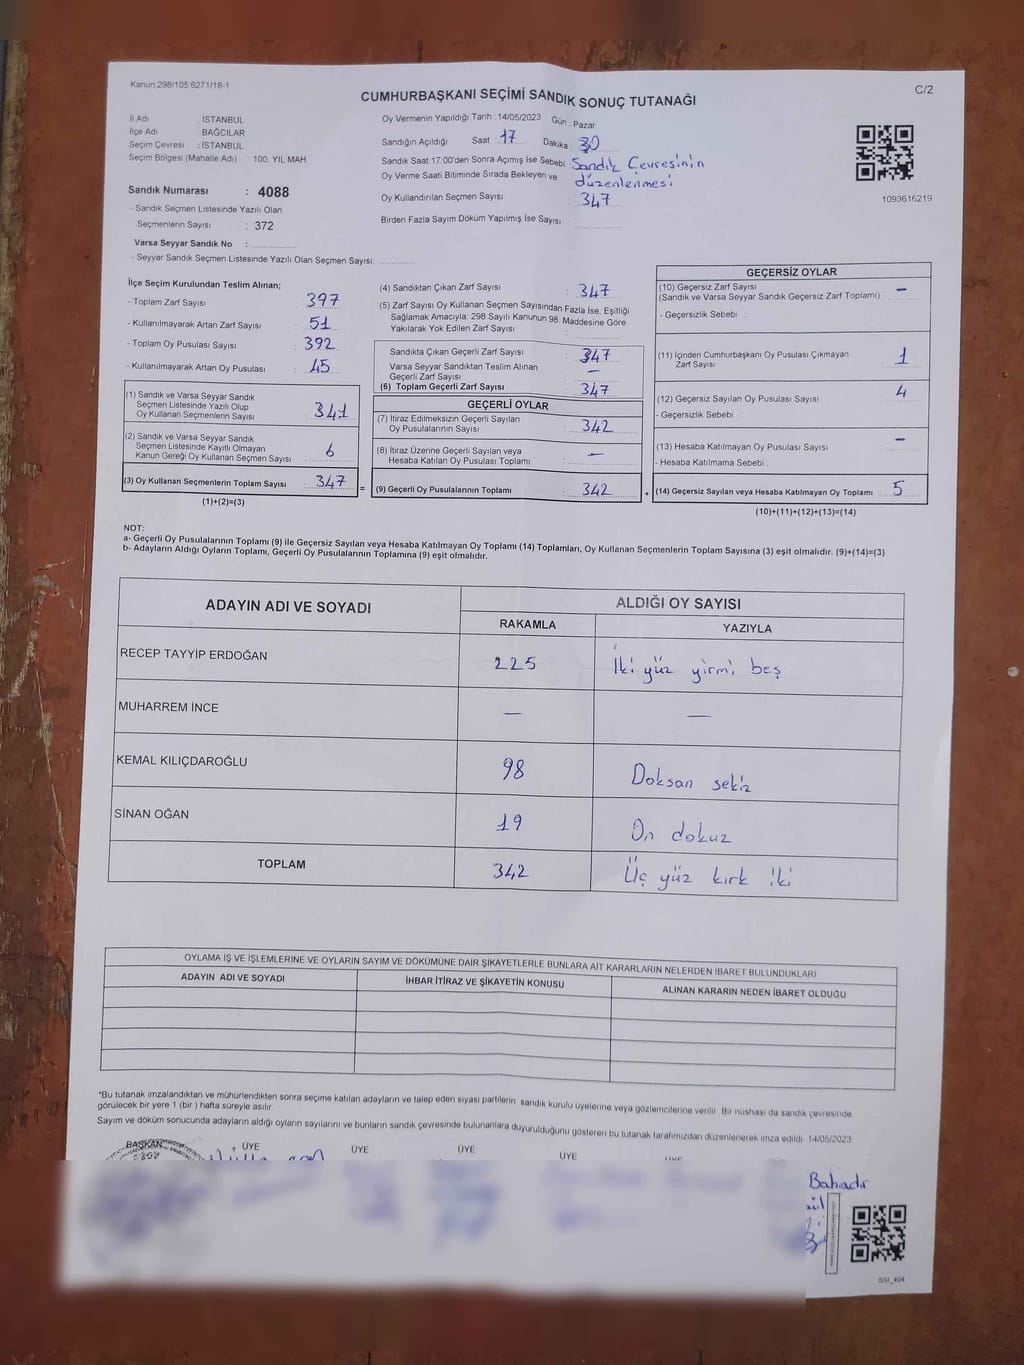 Kanun:298/105:6271/18-1
C/2
CUMHURBAŞKANI SEÇİMİ SANDIK SONUÇ TUTANAĞI
İl Adı : İSTANBUL
İlçe Adı BAĞCILAR
Seçim Çevresi : İSTANBUL
Seçim Bölgesi (Mahalle Adı) : 100. YIL MAH.
Sandık Numarası : 4088
- Sandık Seçmen Listesinde Yazılı Olan
Seçmenlerin Sayısı : 372
Varsa Seyyar Sandık No :
- Seyyar Sandık Seçmen Listesinde Yazılı Olan Seçmen Sayısı:
Oy Vermenin Yapıldığı Tarih : 14/05/2023 Gün : Pazar
Sandığın Açıldığı Saat 17 Dakika : 30
Sandık Saat 17:00'den Sonra Açımış İse Sebebi : Sandık Çevresinin
Oy Verme Saati Bitiminde Sırada Bekleyen ve düzenlenmesi
Oy Kullandırılan Seçmen Sayısı : 347
Birden Fazla Sayım Döküm Yapılmış İse Sayısı :
1093616219
İlçe Seçim Kurulundan Teslim Alınan;
- Toplam Zarf Sayısı : 397
- Kullanılmayarak Artan Zarf Sayısı : 51
- Toplam Oy Pusulası Sayısı : 392
- Kullanılmayarak Artan Oy Pusulası : 45
(1) Sandık ve Varsa Seyyar Sandık
Seçmen Listesinde Yazılı Olup
Oy Kullanan Seçmenlerin Sayısı : 341
(2) Sandık ve Varsa Seyyar Sandık
Seçmen Listesinde Kayıtlı Olmayan
Kanun Gereği Oy Kullanan Seçmen Sayısı : 6
(3) Oy Kullanan Seçmenlerin Toplam Sayısı : 347
(1)+(2)=(3)
(4) Sandıktan Çıkan Zarf Sayısı : 347
(5) Zarf Sayısı Oy Kullanan Seçmen Sayısından Fazla İse, Eşitliği
Sağlamak Amacıyla; 298 Sayılı Kanunun 98. Maddesine Göre
Yakılarak Yok Edilen Zarf Sayısı :
Sandıkta Çıkan Geçerli Zarf Sayısı : 347
Varsa Seyyar Sandıktan Teslim Alınan
Geçerli Zarf Sayısı : —
(6) Toplam Geçerli Zarf Sayısı : 347
GEÇERLİ OYLAR
(7) İtiraz Edilmeksizin Geçerli Sayılan
Oy Pusulalarının Sayısı : 342
(8) İtiraz Üzerine Geçerli Sayılan veya
Hesaba Katılan Oy Pusulası Toplamı : —
= (9) Geçerli Oy Pusulalarının Toplamı : 342 +
GEÇERSİZ OYLAR
(10) Geçersiz Zarf Sayısı —
(Sandık ve Varsa Seyyar Sandık Geçersiz Zarf Toplamı) :
- Geçersizlik Sebebi :
(11) İçinden Cumhurbaşkanı Oy Pusulası Çıkmayan
Zarf Sayısı : 1
(12) Geçersiz Sayılan Oy Pusulası Sayısı : 4
- Geçersizlik Sebebi :
(13) Hesaba Katılmayan Oy Pusulası Sayısı : —
- Hesaba Katılmama Sebebi :
(14) Geçersiz Sayılan veya Hesaba Katılmayan Oy Toplamı : 5
(10)+(11)+(12)+(13)=(14)
NOT:
a- Geçerli Oy Pusulalarının Toplamı (9) ile Geçersiz Sayılan veya Hesaba Katılmayan Oy Toplamı (14) Toplamları, Oy Kullanan Seçmenlerin Toplam Sayısına (3) eşit olmalıdır. (9)+(14)=(3)
b- Adayların Aldığı Oyların Toplamı, Geçerli Oy Pusulalarının Toplamına (9) eşit olmalıdır.
ADAYIN ADI VE SOYADI ALDIĞI OY SAYISI
RAKAMLA YAZIYLA
RECEP TAYYİP ERDOĞAN 225 İki yüz yirmi beş
MUHARREM İNCE — —
KEMAL KILIÇDAROĞLU 98 Doksan sekiz
SİNAN OĞAN 19 On dokuz
TOPLAM 342 Üç yüz kırk iki
OYLAMA İŞ VE İŞLEMLERİNE VE OYLARIN SAYIM VE DÖKÜMÜNE DAİR ŞİKAYETLERLE BUNLARA AİT KARARLARIN NELERDEN İBARET BULUNDUKLARI
ADAYIN ADI VE SOYADI İHBAR İTİRAZ VE ŞİKAYETİN KONUSU ALINAN KARARIN NEDEN İBARET OLDUĞU
*Bu tutanak imzalandıktan ve mühürlendikten sonra seçime katılan adayların ve talep eden siyasi partilerin sandık kurulu üyelerine veya gözlemcilerine verilir. Bir nüshası da sandık çevresinde
görülecek bir yere 1 (bir ) hafta süreyle asılır.
Sayım ve döküm sonucunda adayların aldığı oyların sayılarını ve bunların sandık çevresinde bulunanlara duyurulduğunu gösteren bu tutanak tarafımızdan düzenlenerek imza edildi. 14/05/2023
BAŞKAN ÜYE ÜYE ÜYE ÜYE ÜYE
Bahadır
SSI_404